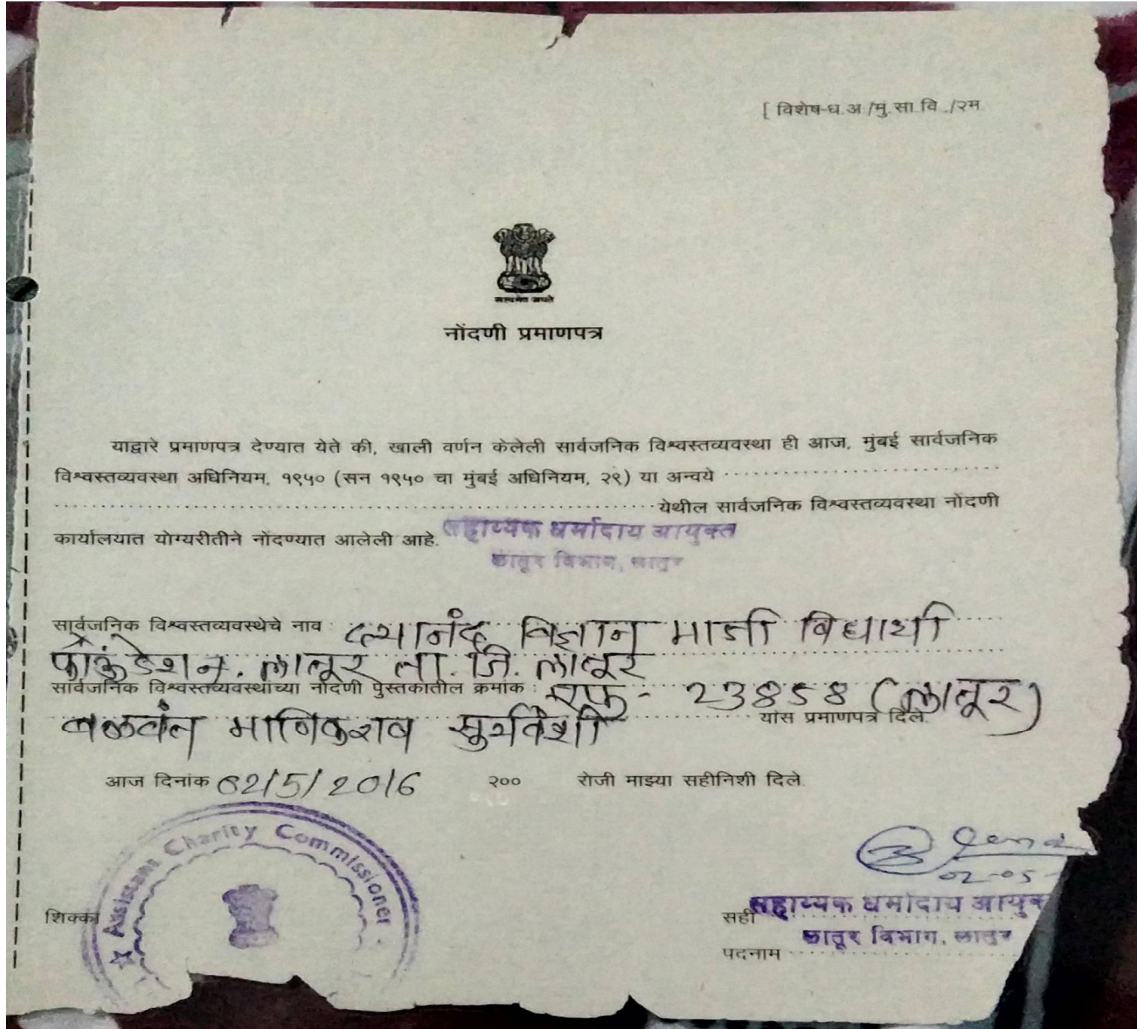 [ विशेष-ध.अ./मु.सा.वि./२म.
सत्यमेव जयते
नोंदणी प्रमाणपत्र
याद्वारे प्रमाणपत्र देण्यात येते की, खाली वर्णन केलेली सार्वजनिक विश्वस्तव्यवस्था ही आज, मुंबई सार्वजनिक
विश्वस्तव्यवस्था अधिनियम, १९५० (सन १९५० चा मुंबई अधिनियम, २९) या अन्वये
येथील सार्वजनिक विश्वस्तव्यवस्था नोंदणी
कार्यालयात योग्यरीतीने नोंदण्यात आलेली आहे. सहाय्यक धर्मादाय आयुक्त
लातूर विभाग, लातूर
सार्वजनिक विश्वस्तव्यवस्थेचे नाव : दयानंद विज्ञान माजी विद्यार्थी
फाऊंडेशन. लातूर ता. जि. लातूर
सार्वजनिक विश्वस्तव्यवस्थेच्या नोंदणी पुस्तकातील क्रमांक : एफ - 23858 (लातूर)
बळवंत माणिकराव सुर्यवंशी यांस प्रमाणपत्र दिले.
आज दिनांक 02/5/2016 २०० रोजी माझ्या सहीनिशी दिले.
Assistant Charity Commissioner
02-05-
शिक्का
सही सहाय्यक धर्मादाय आयुक्त
पदनाम लातूर विभाग, लातूर